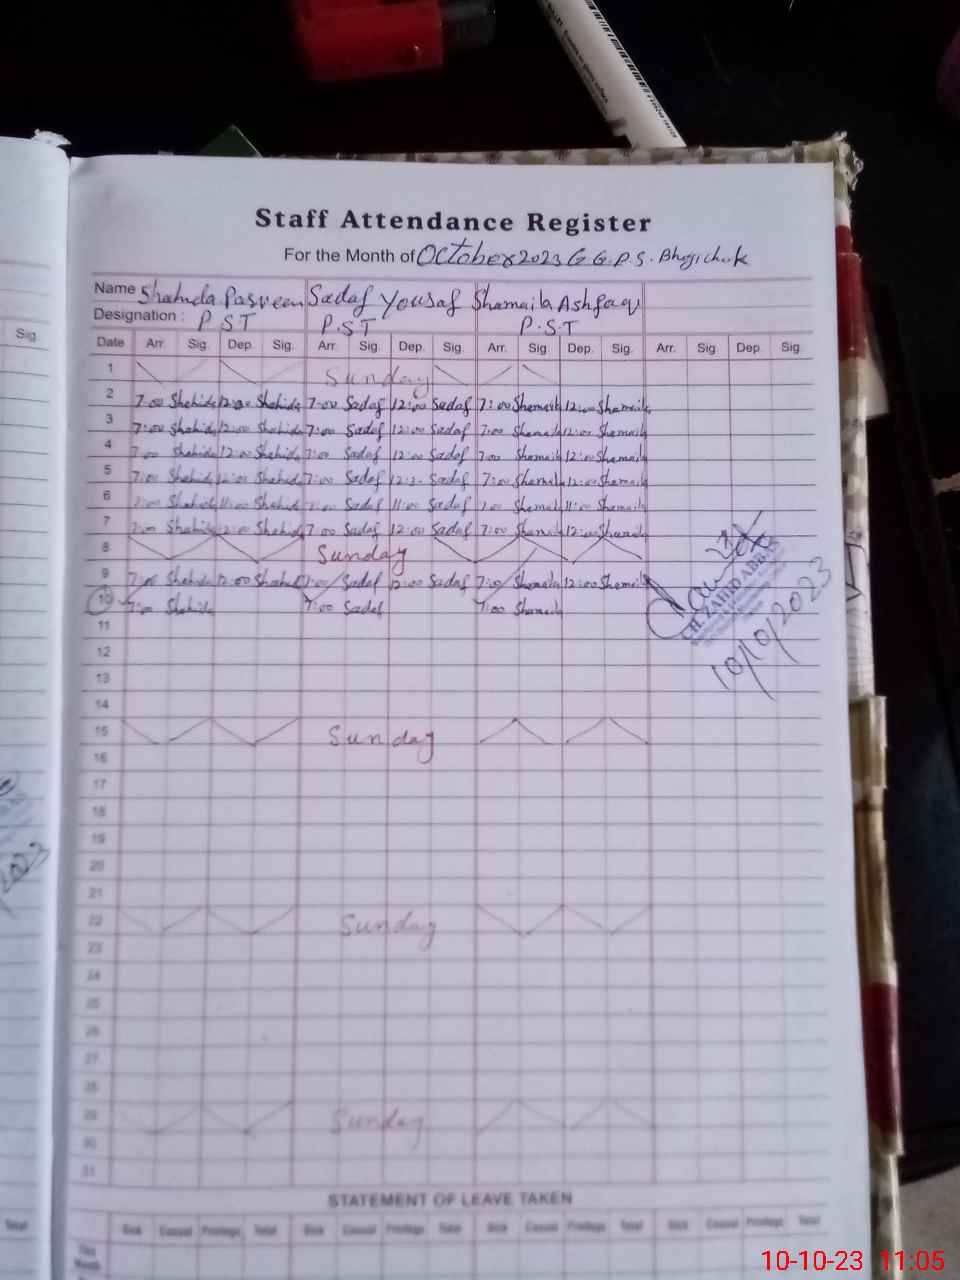 Staff Attendance Register
For the Month of October 2023 G.G.P.S. Bhojichak
Sig.
Name Shahida Parveen Sadaf Yousaf Shamaila Ashfaq
Designation : P S T P.S.T P.S.T
Date Arr. Sig. Dep. Sig. Arr. Sig. Dep. Sig. Arr. Sig Dep. Sig. Arr. Sig Dep. Sig.
1 Sunday
2 7:00 Shahida 12:00 Shahida 7:00 Sadaf 12:00 Sadaf 7:00 Shamaila 12:00 Shamaila
3 7:00 Shahida 12:00 Shahida 7:00 Sadaf 12:00 Sadaf 7:00 Shamaila 12:00 Shamaila
4 7:00 Shahida 12:00 Shahida 7:00 Sadaf 12:00 Sadaf 7:00 Shamaila 12:00 Shamaila
5 7:00 Shahida 12:00 Shahida 7:00 Sadaf Sadaf 7:00 Shamaila 12:00 Shamaila
6 7:00 Shahida 11:00 Shahida 7:00 Sadaf 11:00 Sadaf 7:00 Shamaila 11:00 Shamaila
7 7:00 Shahida 12:00 Shahida 7:00 Sadaf 12:00 Sadaf 7:00 Shamaila 12:00 Shamaila
8 Sunday
9 7:00 Shahida 12:00 Shahida 7:00 Sadaf 12:00 Sadaf 7:00 Shamaila 12:00 Shamaila
10 7:00 Shahida 7:00 Sadaf 7:00 Shamaila
CH. ZAHID ABBAS
10/10/2023
11
12
13
14
15 Sunday
16
17
18
19
20
21
22 Sunday
23
24
25
26
27
28
29 Sunday
30
31
2023
STATEMENT OF LEAVE TAKEN
Total Sick Casual Privilege Total Sick Casual Privilege Total Sick Casual Privilege Total Sick Casual Privilege Total
This
Month
10-10-23 11:05